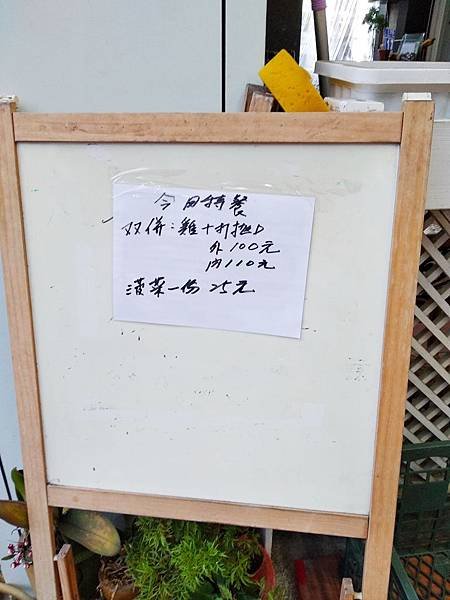 今日特餐
双併:雞+扒
外100元
內110元
漢菜一份 25元